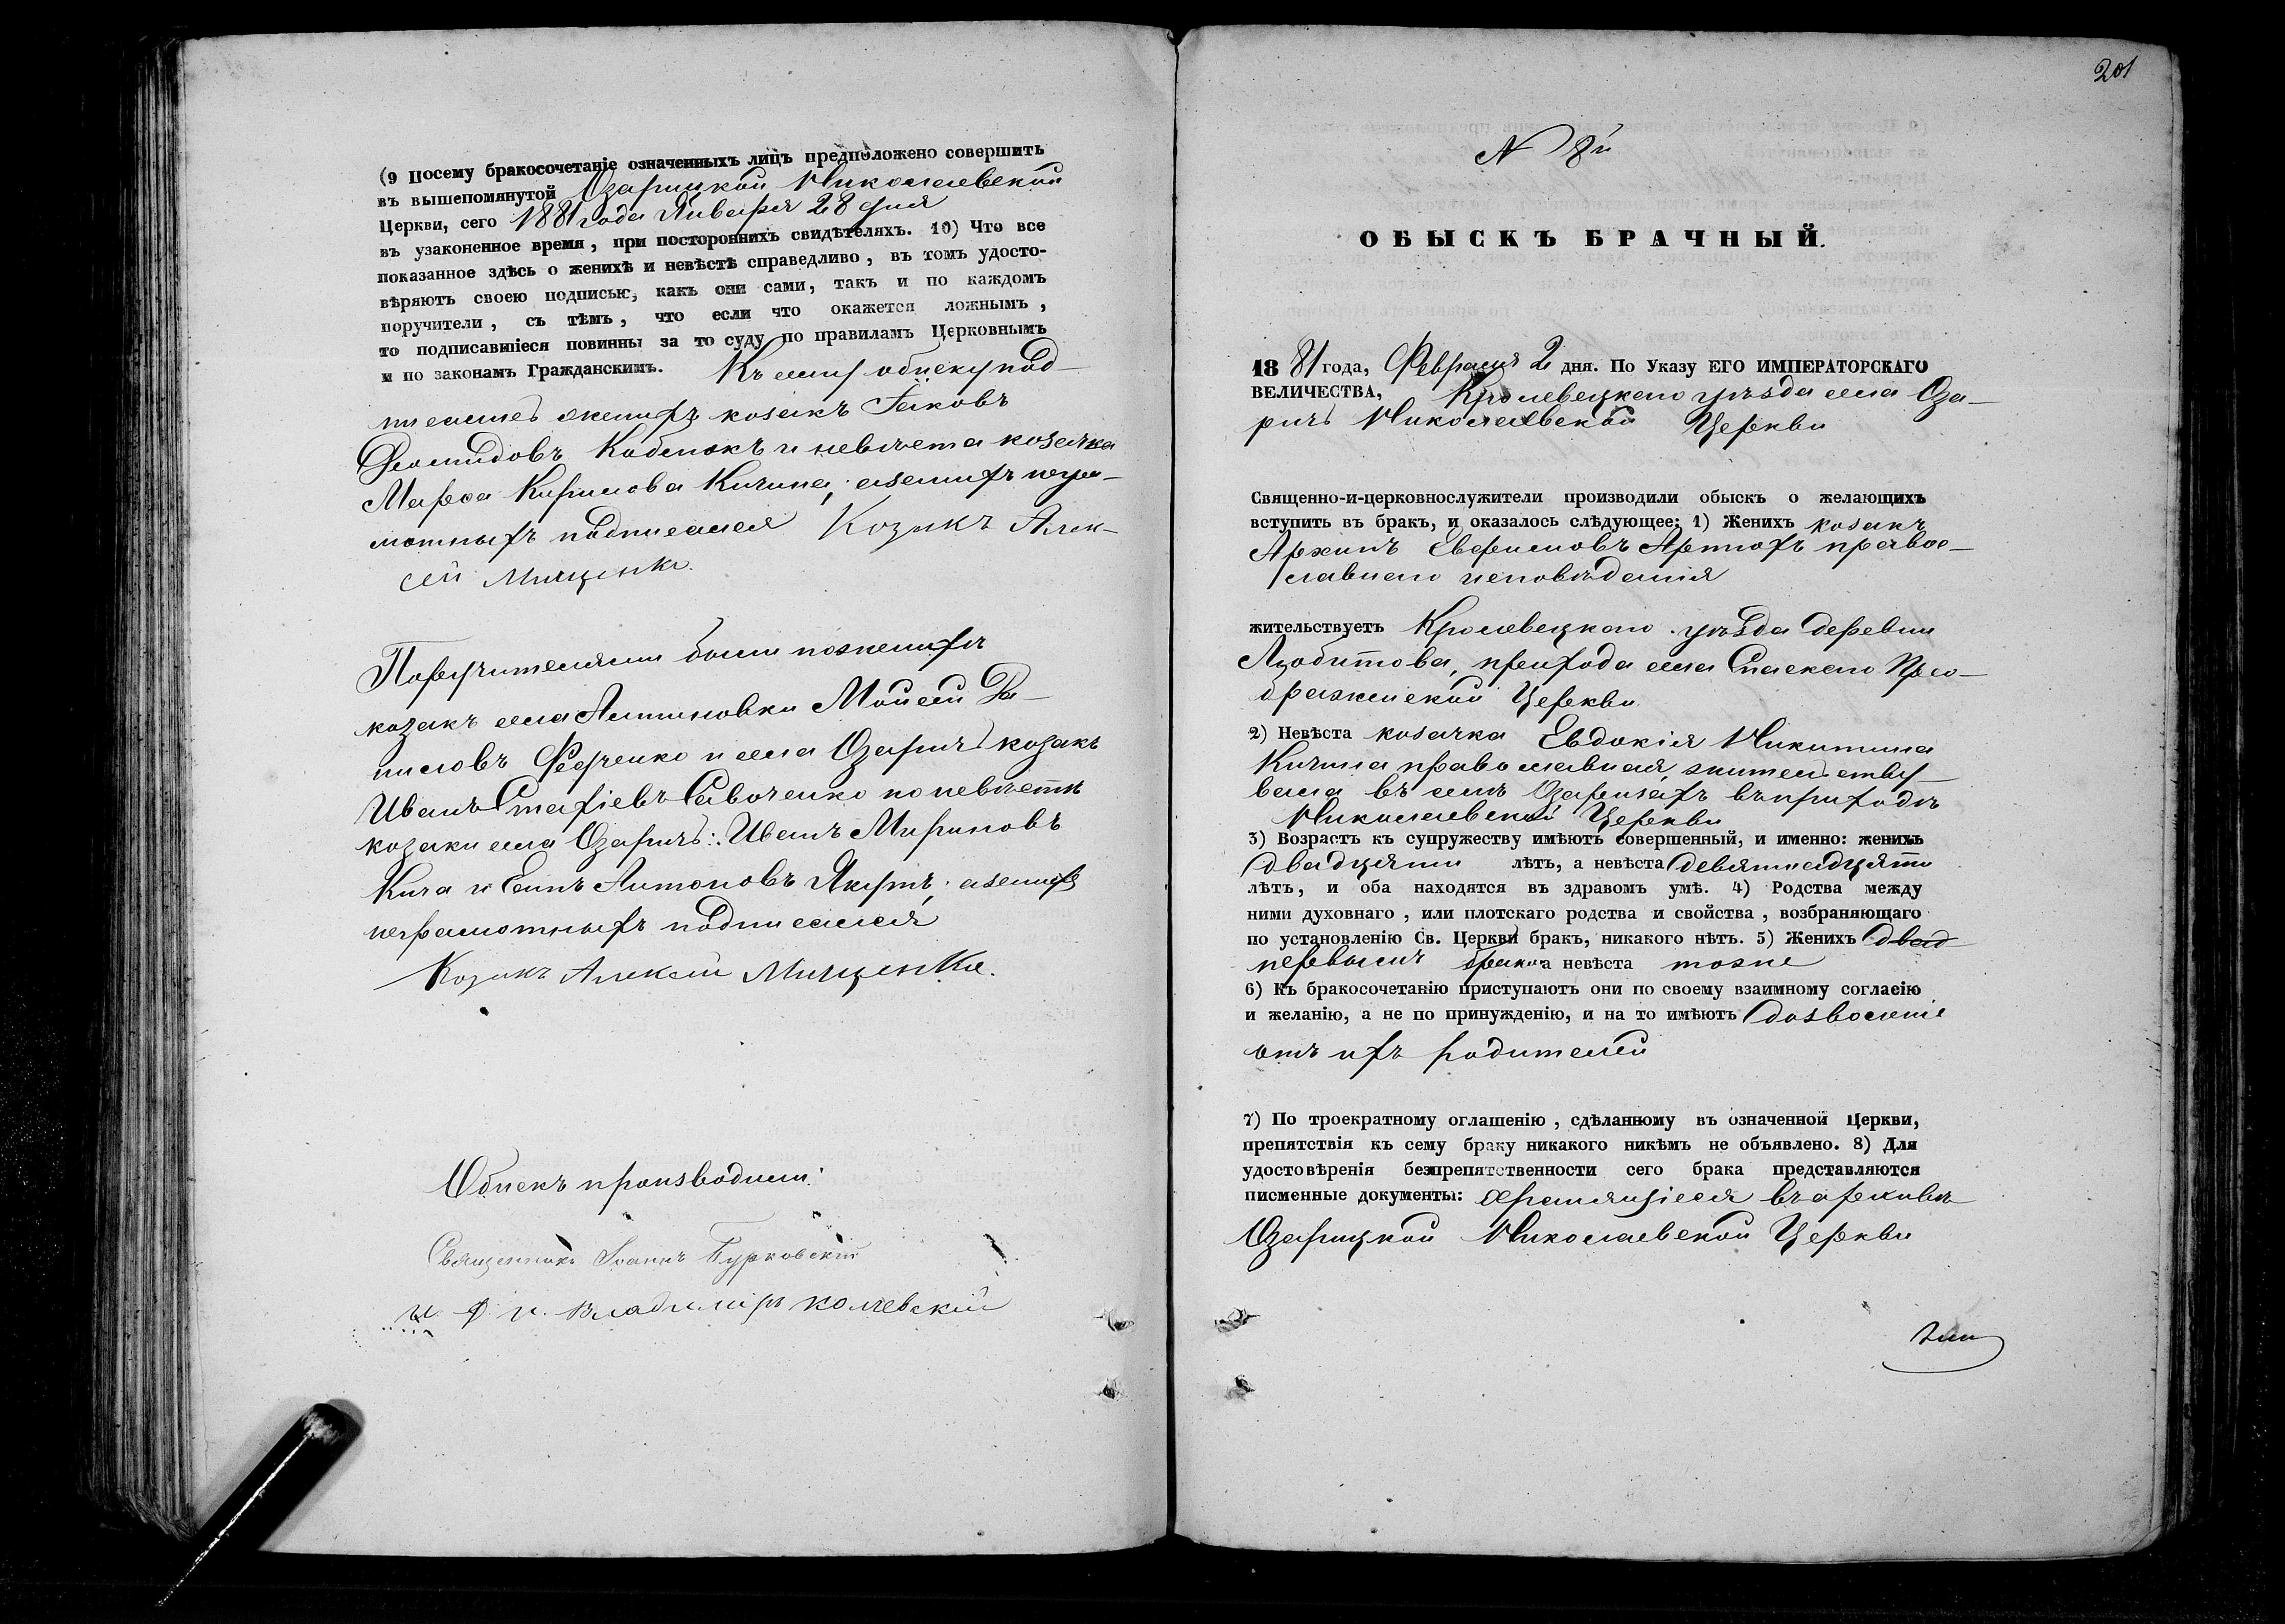 (9 Посему бракосочетаніе означенныхъ лицъ предположено совершить
въ вышепомянутой Озарицкой Николаевской
Церкви, сего 1881 года Января 28 дня
въ узаконенное время, при постороннихъ свидѣтеляхъ. 10) Что все
показанное здѣсь о женихѣ и невѣстѣ справедливо, въ томъ удосто-
вѣряютъ своею подписью, какъ они сами, такъ и по каждомъ
поручители, съ тѣмъ, что если что окажется ложнымъ,
то подписавшіеся повинны за то суду по правиламъ Церковнымъ
и по законамъ Гражданскимъ. Къ сему обыску под-
писались женихъ козакъ Іаковъ
Кобыльокъ и невѣста козачка
Марѳа Кирилова Кичина, а за нихъ негра-
мотныхъ подписался Козакъ Алек-
сѣй Мищенко.
Поручителями были по женихѣ
козакъ села Литиновки Моисей Да-
ниловъ Федченко и села Озаричъ козакъ
Иванъ Савченко по невѣстѣ
козаки села Озаричъ: Иванъ Мироновъ
Кича и Антоновъ Якутъ, а за нихъ
неграмотныхъ подписался
Козакъ Алексѣй Мищенко.
Обыскъ производили:
Священникъ Іоаннъ Бурковскій
и. д. п. Владиміръ
201
N 8й
ОБЫСКЪ БРАЧНЫЙ.
18 81 года, Февраля 2 дня. По Указу ЕГО ИМПЕРАТОРСКАГО
ВЕЛИЧЕСТВА, Кролевецкаго уѣзда села Оза-
ричъ Николаевской Церкви
Священно-и-церковнослужители производили обыскъ о желающихъ
вступить въ бракъ, и оказалось слѣдующее: 1) Женихъ козакъ
Архипъ Евфимовъ Артюхъ право-
славнаго исповѣданія
жительствуетъ Кролевецкаго уѣзда деревни
Любитова, прихода села Спаскаго Прео-
браженской Церкви
2) Невѣста козачка Евдокія Никитина
Кичина православная, жительству-
вала въ селѣ Озаричахъ въ приходѣ
Николаевской Церкви
3) Возрастъ къ супружеству имѣютъ совершенный, и именно: женихъ
двадцяти лѣтъ, а невѣста девятнадцяти
лѣтъ, и оба находятся въ здравомъ умѣ. 4) Родства между
ними духовнаго, или плотскаго родства и свойства, возбраняющаго
по установленію Св. Церкви бракъ, никакого нѣтъ. 5) Женихъ двад
первымъ бракомъ а невѣста тоже
6) Къ бракосочетанію приступаютъ они по своему взаимному согласію
и желанію, а не по принужденію, и на то имѣютъ дозволеніе
отъ ихъ родителей
7) По троекратному оглашенію, сдѣланному въ означенной Церкви,
препятствія къ сему браку никакого никѣмъ не объявлено. 8) Для
удостовѣренія безпрепятственности сего брака представляются
писменные документы: хранящіеся въ архивѣ
Озарицкой Николаевской Церкви